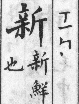 新
新鮮
也